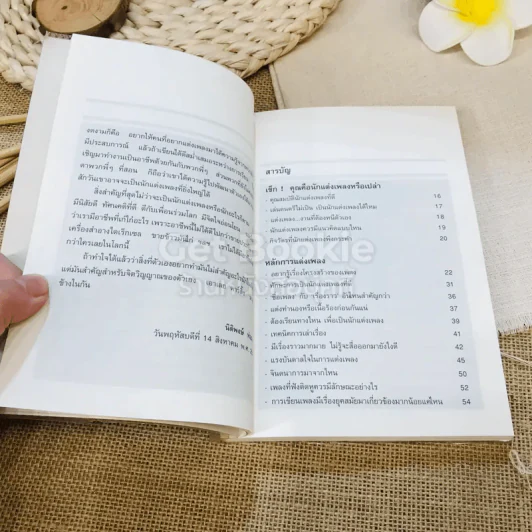 งดงามก็คือ อยากให้คนที่อยากแต่งเพลงมาได้ความรู้
มีประสบการณ์ แล้วถ้าเขียนได้ดีสม่ำเสมอ
เชิญมาทำงานเป็นอาชีพด้วยกันกับพวกพี่ๆ
ตาพวกพี่ๆ ที่สอน ก็ถือว่าเขาได้ความรู้ไป
สักวันเขาอาจจะเป็นนักแต่งเพลงที่ยิ่งใหญ่ได้
สิ่งสำคัญที่สุดไม่ว่าจะเป็นนักแต่งเพลง
มีนิสัยดี ทัศนคติที่ดี ดีกับเพื่อนร่วมโลก มีจิตใจอ่อนโยน
ว่าเรามีอาชีพที่เก๋ไก๋อะไร เพราะอาชีพนี้ไม่ได้ดีไปกว่า
เครื่องสำอางไดเร็กเซล ขายข้าวมันไก่ ฯลฯ
กว่าใครเลยในโลกนี้
ถ้าทำใจได้แล้วว่าสิ่งที่ตัวเองอยากทำมันไม่สำคัญอะไร
แต่มันสำคัญสำหรับจิตวิญญาณของตัวเอง
ข้างในกัน
นิติพงษ์
วันพฤหัสบดีที่ 14 สิงหาคม พ.ศ.
สารบัญ
เช็ก 1 คุณคือนักแต่งเพลงหรือเปล่า
- คุณสมบัตินักแต่งเพลงที่ดี 16
- เล่นดนตรีไม่เป็น เป็นนักแต่งเพลงได้ไหม 17
- แต่งเพลง...งานที่ต้องหนีตัวเอง 18
- นักแต่งเพลงควรมีแนวคิดแบบไหน 19
- กิจวัตรที่นักแต่งเพลงพึงกระทำ 20
หลักการแต่งเพลง
- อยากรู้เรื่องโครงสร้างของเพลง 22
- 31
- ชื่อเพลง กับ เรื่องราว อันไหนสำคัญกว่า 35
- แต่งทำนองหรือเนื้อร้องก่อนกันแน่ 37
- ต้องเรียนทางไหน เพื่อเป็นนักแต่งเพลง 39
- เทคนิคการเล่าเรื่อง 41
- มีเรื่องราวมากมาย ไม่รู้จะสื่อออกมายังไงดี 42
- แรงบันดาลใจในการแต่งเพลง 45
- จินตนาการมาจากไหน 50
- เพลงที่ฟังติดหูควรมีลักษณะอย่างไร 52
- การเขียนเพลงมีเรื่องยุคสมัยมาเกี่ยวข้องมากน้อยแค่ไหน 54
Get Bookie